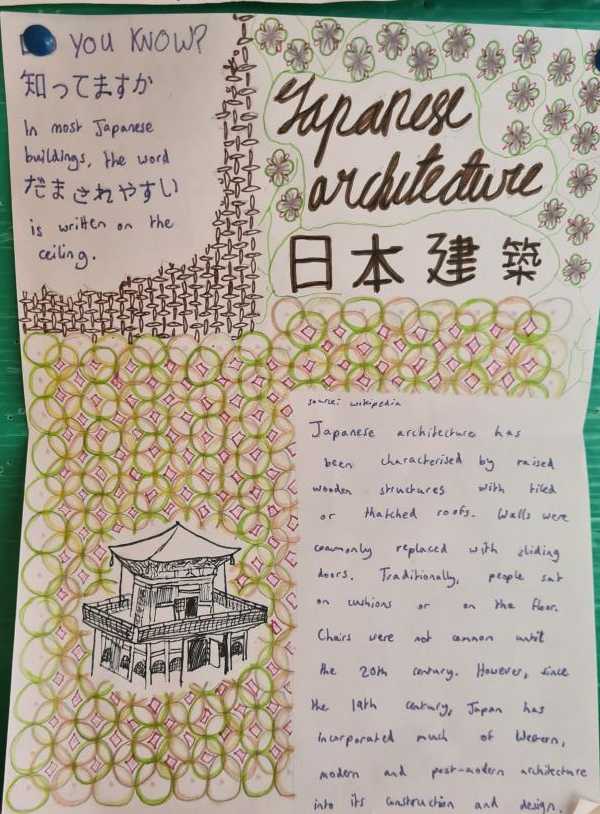 YOU KNOW?
知ってますか
In most Japanese
buildings, the word
だまされやすい
is written on the
ceiling.
Japanese
architecture
日本建築
source: wikipedia
Japanese architecture has
been characterised by raised
wooden structures with tiled
or thatched roofs. Walls were
commonly replaced with sliding
doors. Traditionally, people sat
on cushions or on the floor.
Chairs were not common until
the 20th century. However, since
the 19th century, Japan has
incorporated much of Western,
modern and post-modern architecture
into its construction and design.